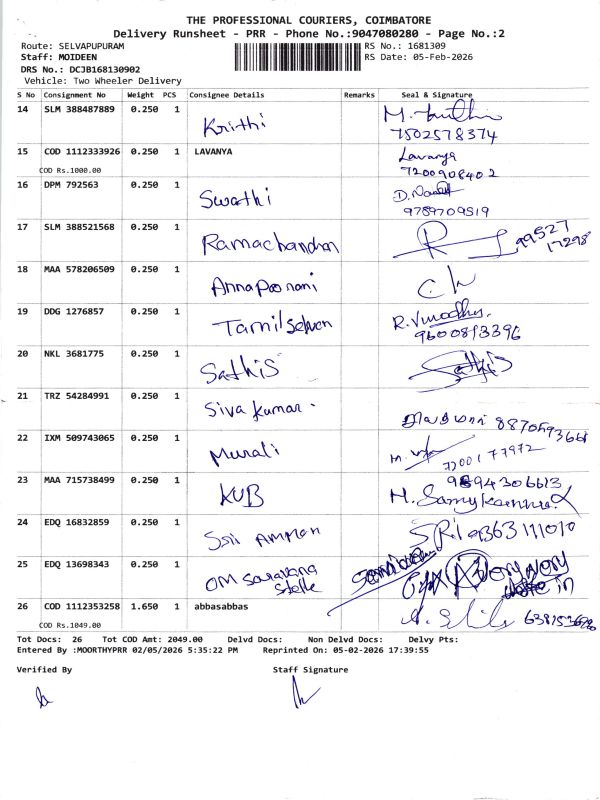 THE PROFESSIONAL COURIERS, COIMBATORE
Delivery Runsheet - PRR - Phone No.:9047080280 - Page No.:2
Route: SELVAPUPURAM
RS No.: 1681309
Staff: MOIDEEN
RS Date: 05-Feb-2026
DRS No.: DCJB168130902
Vehicle: Two Wheeler Delivery
S No Consignment No Weight PCS Consignee Details Remarks Seal & Signature
14 SLM 388487889 0.250 1 Krithi
7502578374
15 COD 1112333926 0.250 1 LAVANYA Lavanya
COD Rs.1000.00 7200908402
16 DPM 792563 0.250 1 Swathi
9789709519
17 SLM 388521568 0.250 1 Ramachandran 99527
17298
18 MAA 578206509 0.250 1 Annapoorani
19 DDG 1276857 0.250 1 Tamilselvan R. Vinodhu.
9600893396
20 NKL 3681775 0.250 1 Sathis
21 TRZ 54284991 0.250 1 Siva kumar.
22 IXM 509743065 0.250 1 Murali
7200177972
23 MAA 715738499 0.250 1 KUB 9894306613
24 EDQ 16832859 0.250 1 Sri Amman SRI 9363111010
25 EDQ 13698343 0.250 1 OM Saravana
26 COD 1112353258 1.650 1 abbasabbas
COD Rs.1049.00
Tot Docs: 26 Tot COD Amt: 2049.00 Delvd Docs: Non Delvd Docs: Delvy Pts:
Entered By :MOORTHYPRR 02/05/2026 5:35:22 PM Reprinted On: 05-02-2026 17:39:55
Verified By Staff Signature